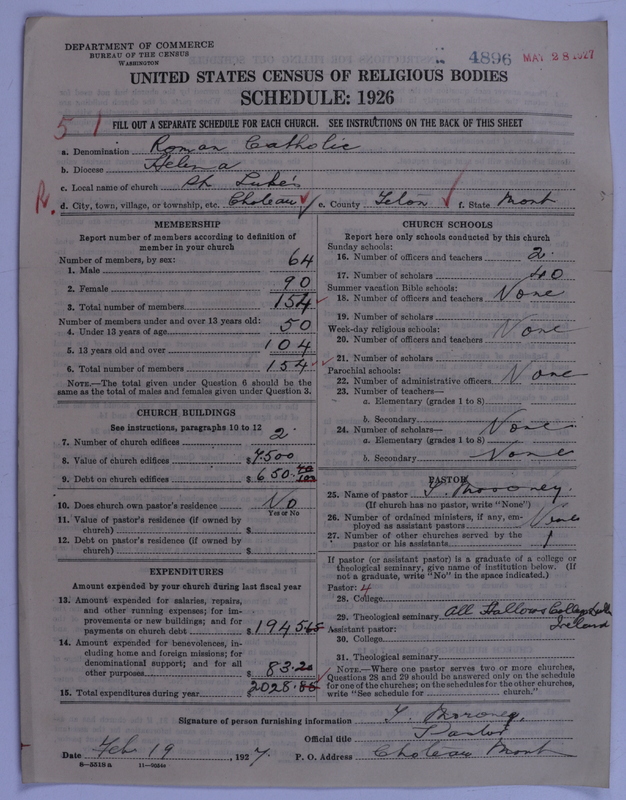 DEPARTMENT OF COMMERCE
BUREAU OF THE CENSUS
WASHINGTON
4896
MAY 28 1927
UNITED STATES CENSUS OF RELIGIOUS BODIES
SCHEDULE: 1926
51
FILL OUT A SEPARATE SCHEDULE FOR EACH CHURCH. SEE INSTRUCTIONS ON THE BACK OF THIS SHEET
a. Denomination Roman Catholic
b. Diocese Helena
c. Local name of church St. Luke's
R.
d. City, town, village, or township, etc. Choteau e. County Teton f. State Mont
MEMBERSHIP
Report number of members according to definition of
member in your church
Number of members, by sex:
1. Male 64
2. Female 90
3. Total number of members 154
Number of members under and over 13 years old:
4. Under 13 years of age 50
5. 13 years old and over 104
6. Total number of members 154
NOTE.—The total given under Question 6 should be the
same as the total of males and females given under Question 3.
CHURCH BUILDINGS
See instructions, paragraphs 10 to 12
7. Number of church edifices 2
8. Value of church edifices $7500
9. Debt on church edifices $650
10. Does church own pastor's residence No
Yes or No
11. Value of pastor's residence (if owned by
church) $
12. Debt on pastor's residence (if owned by
church) $
EXPENDITURES
Amount expended by your church during last fiscal year
13. Amount expended for salaries, repairs,
and other running expenses; for im-
provements or new buildings; and for
payments on church debt $1945
14. Amount expended for benevolences, in-
cluding home and foreign missions; for
denominational support; and for all
other purposes $83.20
15. Total expenditures during year $2028.85
CHURCH SCHOOLS
Report here only schools conducted by this church
Sunday schools:
16. Number of officers and teachers 2
17. Number of scholars 40
Summer vacation Bible schools:
18. Number of officers and teachers None
19. Number of scholars
Week-day religious schools:
20. Number of officers and teachers None
21. Number of scholars
Parochial schools:
22. Number of administrative officers None
23. Number of teachers—
a. Elementary (grades 1 to 8)
b. Secondary None
24. Number of scholars—
a. Elementary (grades 1 to 8)
b. Secondary None
PASTOR
25. Name of pastor T. Moroney
(If church has no pastor, write "None")
26. Number of ordained ministers, if any, em-
ployed as assistant pastors None
27. Number of other churches served by the
pastor or his assistants 1
If pastor (or assistant pastor) is a graduate of a college or
theological seminary, give name of institution below. (If
not a graduate, write "No" in the space indicated.)
Pastor: 4
28. College
29. Theological seminary All Hallows College
Ireland
Assistant pastor:
30. College
31. Theological seminary
NOTE.—Where one pastor serves two or more churches,
Questions 28 and 29 should be answered only on the schedule
for one of the churches; on the schedules for the other churches,
write "See schedule for church."
Signature of person furnishing information T. Moroney,
Official title Pastor
Date Feb. 19, 1927. P. O. Address Choteau Mont
8—5518a 11—9054a